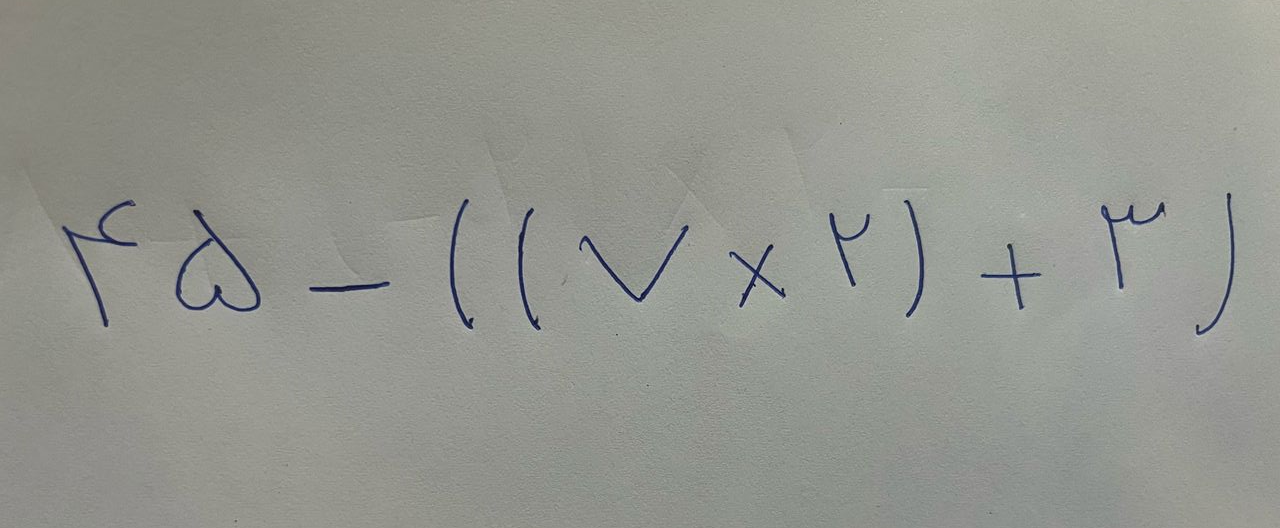 ۴۵ - ((۷ × ۲) + ۳)